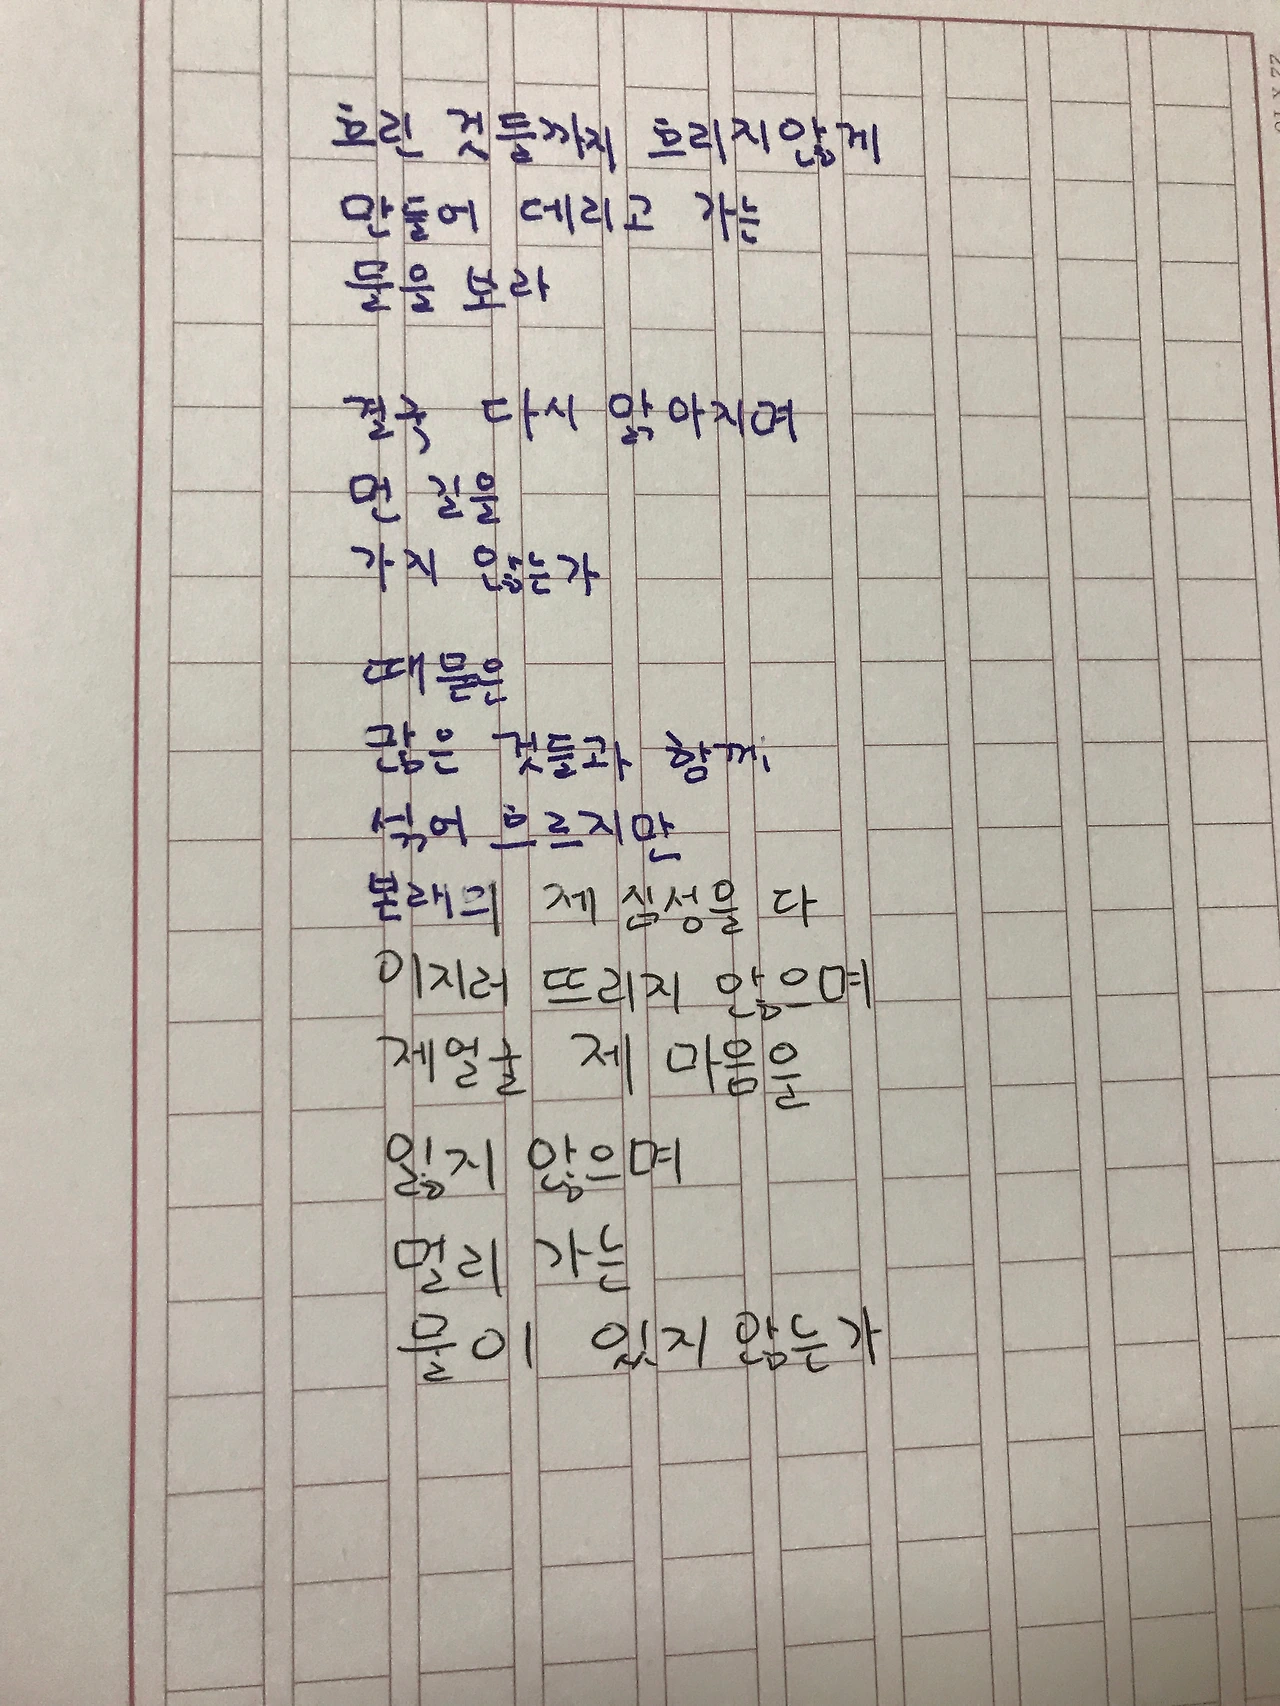 흐린 것들까지 흐리지않게
만들어 데리고 가는
물을 보라
결국 다시 맑아지며
먼 길을
가지 않는가
때묻은
많은 것들과 함께
섞어 흐르지만
본래의 제 심성을 다
이지러 뜨리지 않으며
제얼굴 제 마음을
잃지 않으며
멀리 가는
물이 있지 않는가
22 X 10